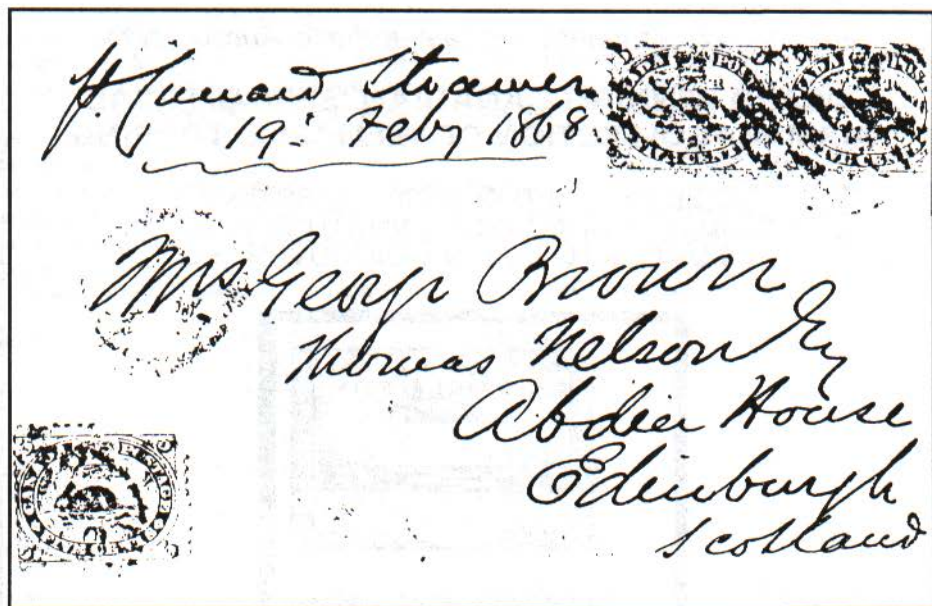 p. Cunard Steamer
19: Feby 1868.
Mrs George Brown
Thomas Nelson Esq
Abden House
Edinburgh
Scotland